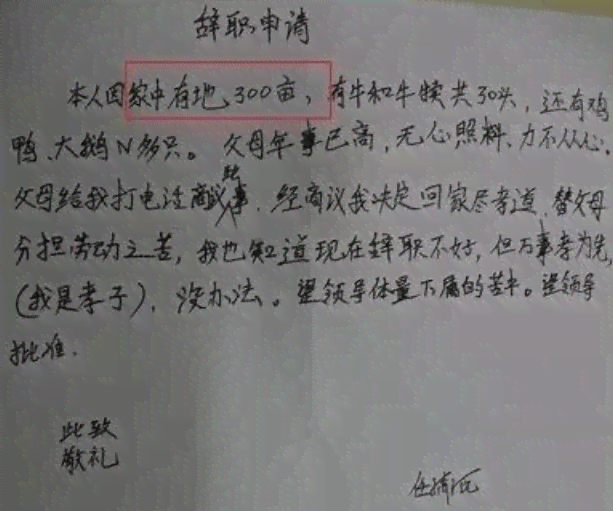 辞职申请
本人因家中有地300亩，有牛和牛犊共30头，还有鸡
鸭、大鹅N多只。父母年事已高，无心照料、力不从心。
父母给我打电话商议此事，经商议我决定回家尽孝道，替父母
分担劳动之苦，我也知道现在辞职不好，但万事孝为先，
(我是孝子)，没办法。望领导体量下属的苦中。望领导
批准.
此致
敬礼